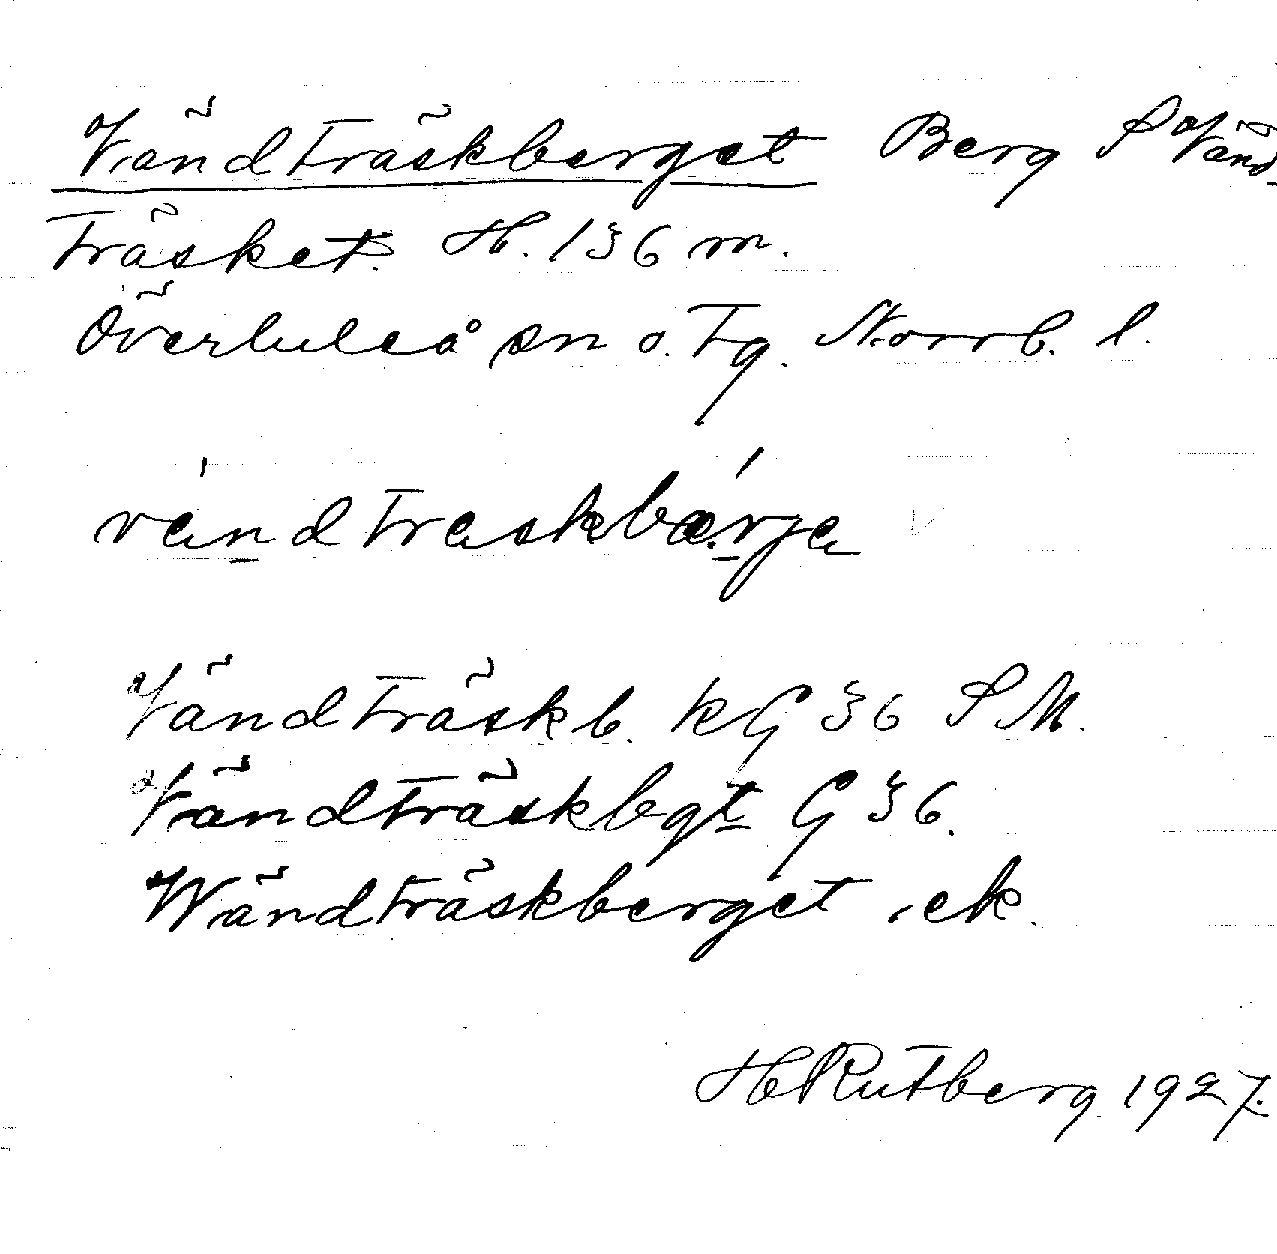 Vändträskberget Berg S Vänd-
träsket. H. 136 m.
Överluleå sn o. tg. Norrb. l.
vändtraskbærja
Vändträskb. kG 36 SM.
Vändträskbgt G 36.
Wändträskberget, ek.
H Rutberg 1927.